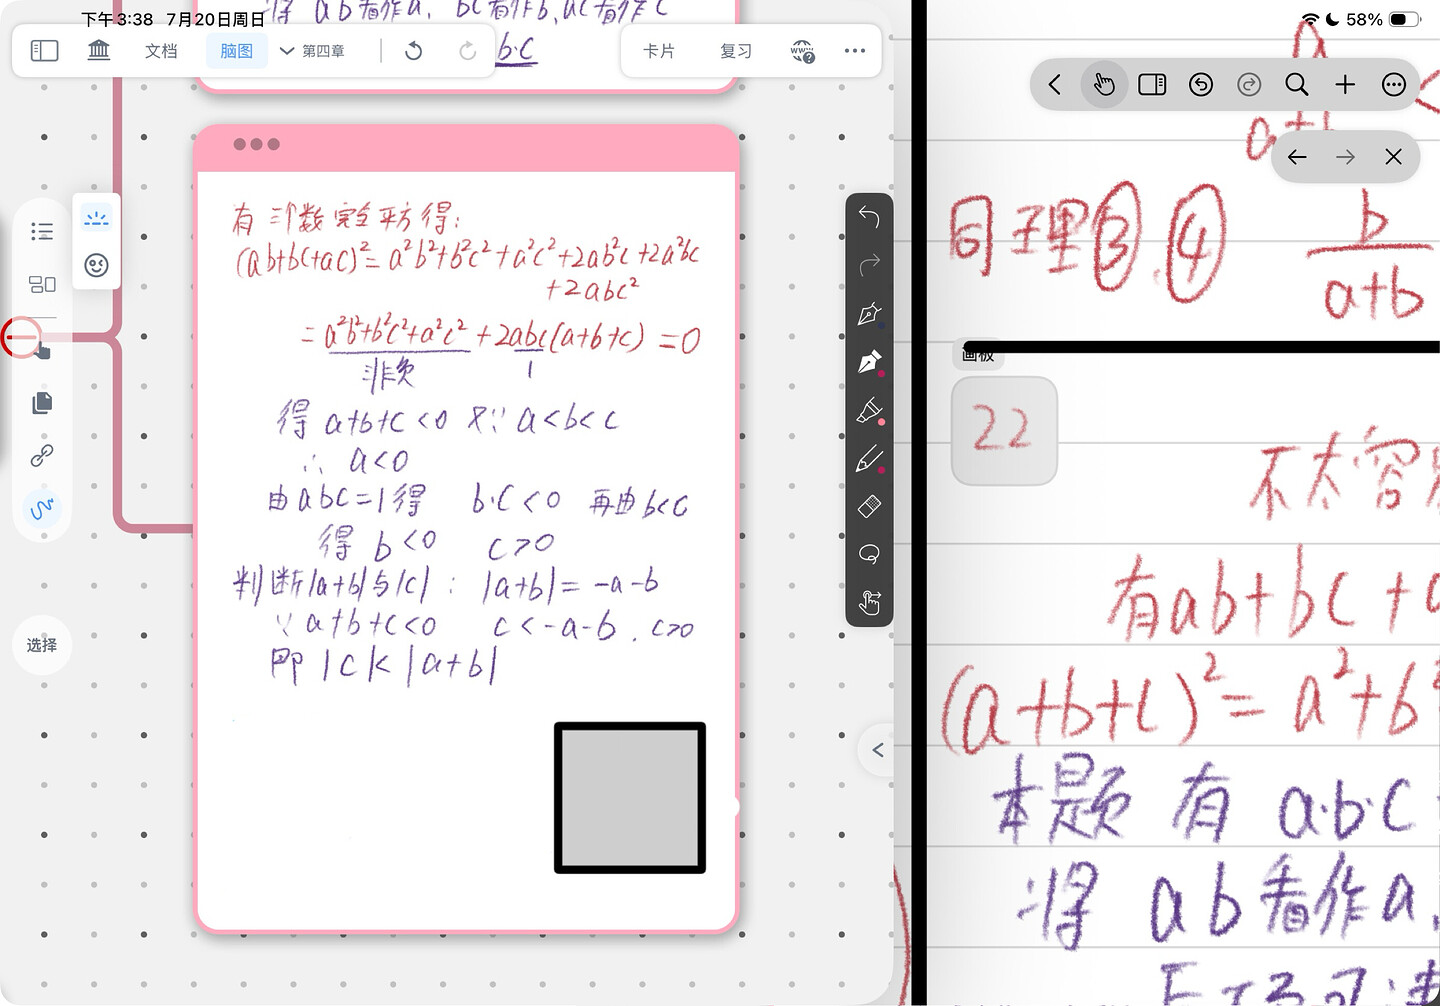 下午3:38 7月20日周日
58%
将 ab看作a, bc看作b, ac看作c
文档 脑图 第四章
卡片 复习
b·c
有三个数完全平方得:
(ab+bc+ac)²=a²b²+b²c²+a²c²+2ab²c+2a²bc
+2abc²
=a²b²+b²c²+a²c²+2abc(a+b+c)=0
非负 1
得 a+b+c<0 又∵ a<b<c
∴ a<0
由abc=1得 b·c<0 再由b<c
得 b<0 c>0
判断|a+b|与|c|: |a+b|=-a-b
∵ a+b+c<0 c<-a-b. c>0
即 |c|<|a+b|
选择
a
a+b
同理③.④ b
a+b
画板
22
不太容
有ab+bc+
(a+b+c)²=a²+b²
本题 有 a·b·c
将 ab看作a,